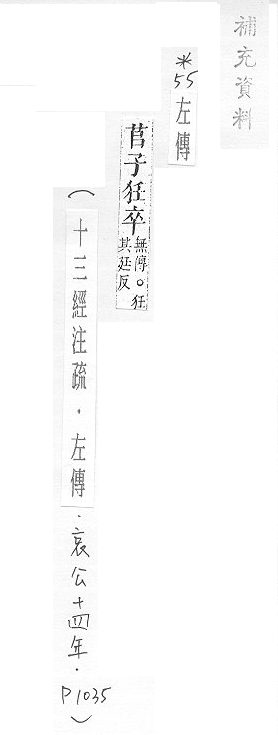 補充資料
*55左傳
莒子狂卒無傳。狂其廷反
(十三經注疏．左傳．哀公十四年．P1035)